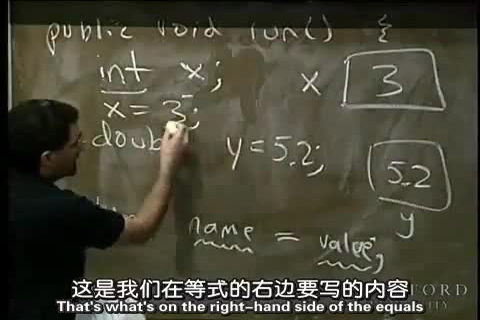 public void run() {
int x;
x 3
x = 3;
doub y = 5.2;
5.2
y
name = value;
这是我们在等式的右边要写的内容
That's what's on the right-hand side of the equals